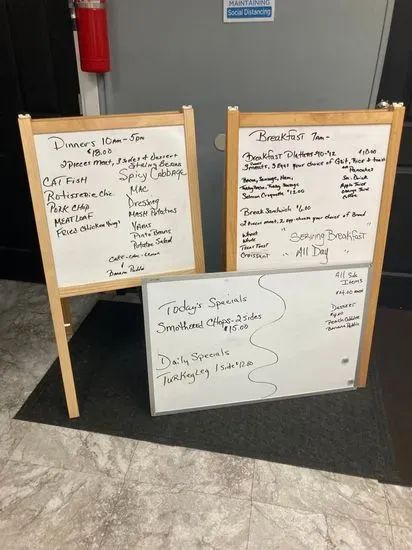 MAINTAINING
Social Distancing
Dinners 10am-5pm
$18.00
2 pieces meat, 3 sides & Dessert
CAT FISH
Rotisserie Chic.
PORK CHOP
MEAT LOAF
FRIED Chicken Wings
String Beans
Spicy Cabbage
MAC
Dressing
MASH Potatoes
YAMS
Pinto Beans
Potato Salad
CAKE - Lemon
Banana Puddin
Breakfast 7am-
Breakfast Platters
$10.00
2 meats, 2 Eggs your choice of Grit, Rice & toast
or Pancakes
Bacon, Sausage, Ham,
Turkey Bacon, Turkey Sausage
Salmon Croquette $12.00
Sm. Drink
Apple Juice
Orange Juice
Coffee
Break Sandwich $6.00
2 pieces meat, 2 eggs, cheese your choice of Bread
Wheat
White
Texas Toast
Croissant
"Serving Breakfast
All Day"
Today's Specials
Smothered Chops - 2 sides
$15.00
Daily Specials
Turkey Leg 1 side $12.00
All Side
Items
$4.00
Dessert
$4.00
Peach Cobbler
Banana Puddin